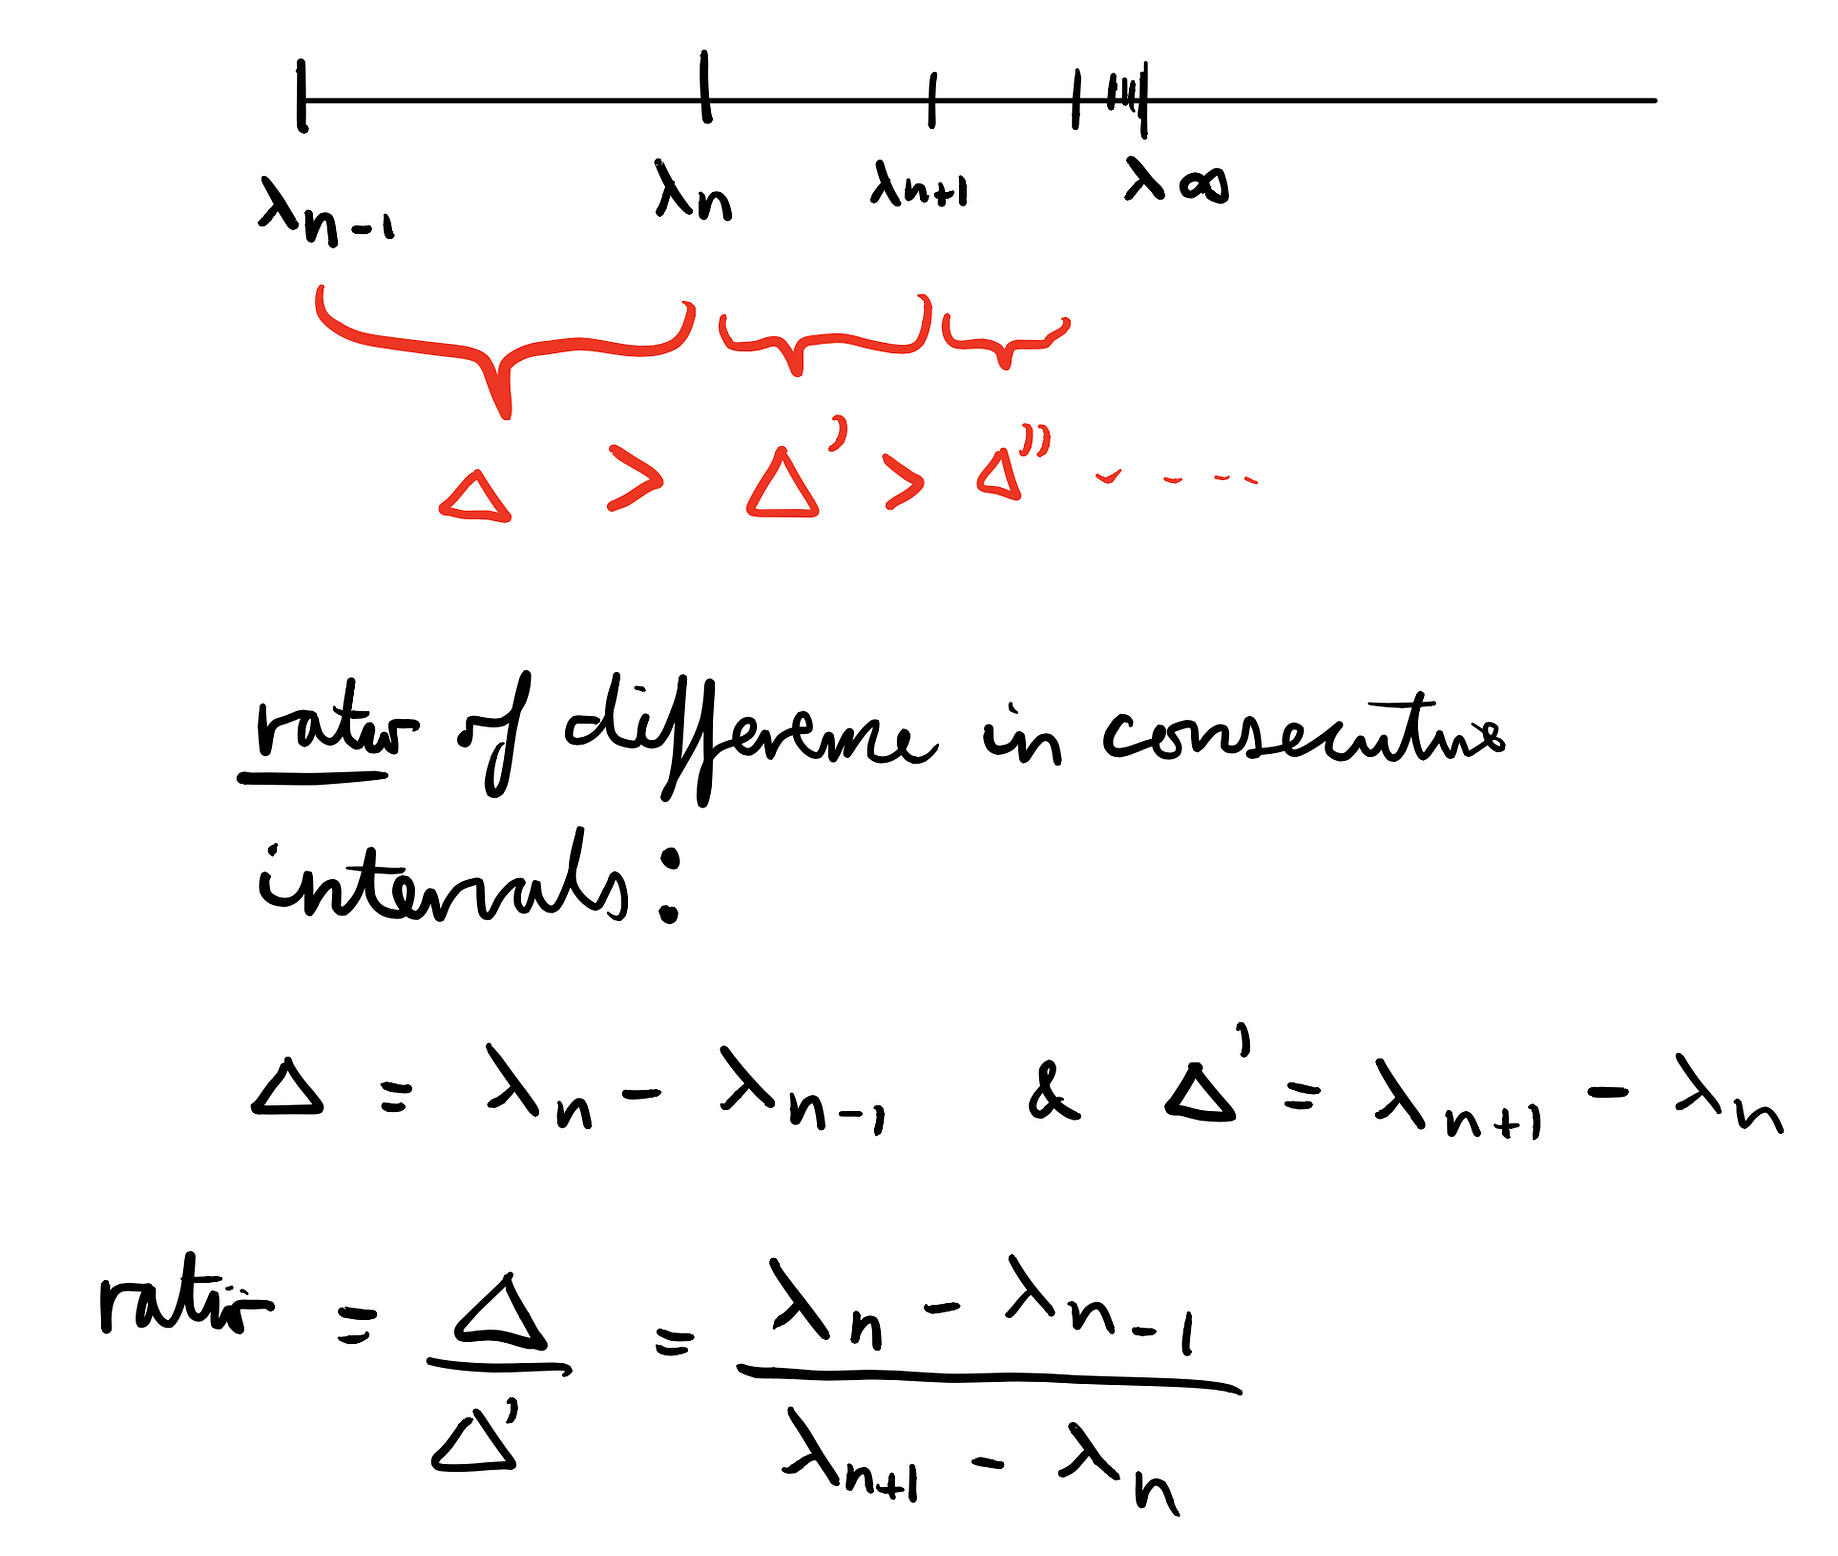 λn-1 λn λn+1 λ∞
Δ > Δ' > Δ'' - - - -
ratio of difference in consecutive
intervals:
Δ = λn - λn-1 & Δ' = λn+1 - λn
ratio = Δ/Δ' = (λn - λn-1)/(λn+1 - λn)